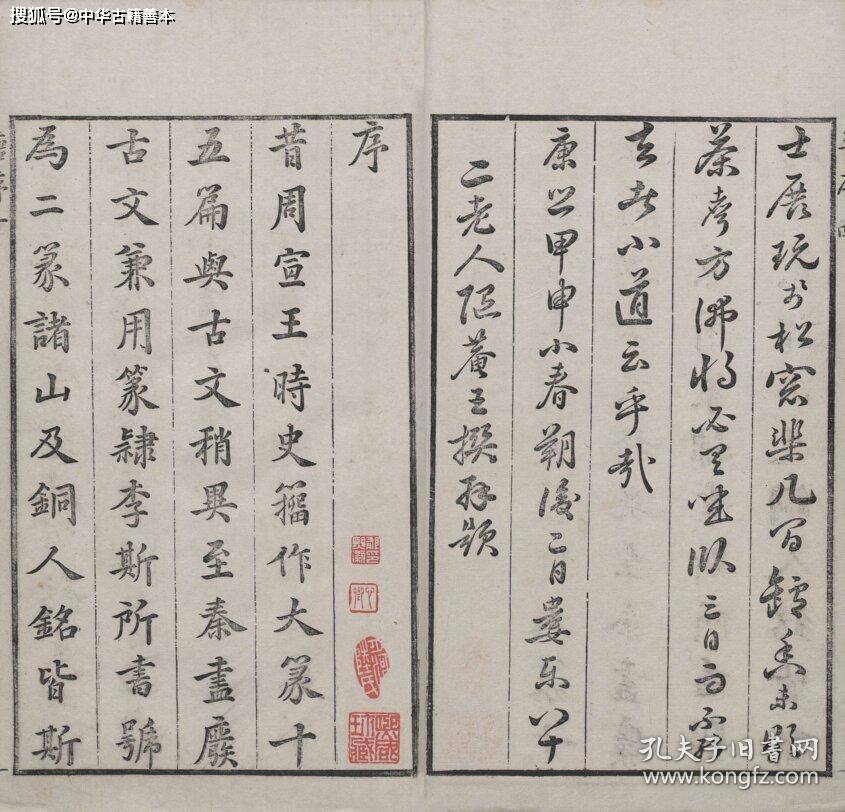 搜狐号@中华古籍善本
士展玩於松窓棐几間鑪香未歇
茶聲方沸將必有坐臥三日而不
去者小道云乎哉
康熙甲申小春朔後二日婁東八十
二老人隨菴王撰拜題
序
昔周宣王時史籀作大篆十
五篇與古文稍異至秦盡廢
古文兼用篆隸李斯所書號
為二篆諸山及銅人銘皆斯
孔夫子旧书网
www.kongfz.com